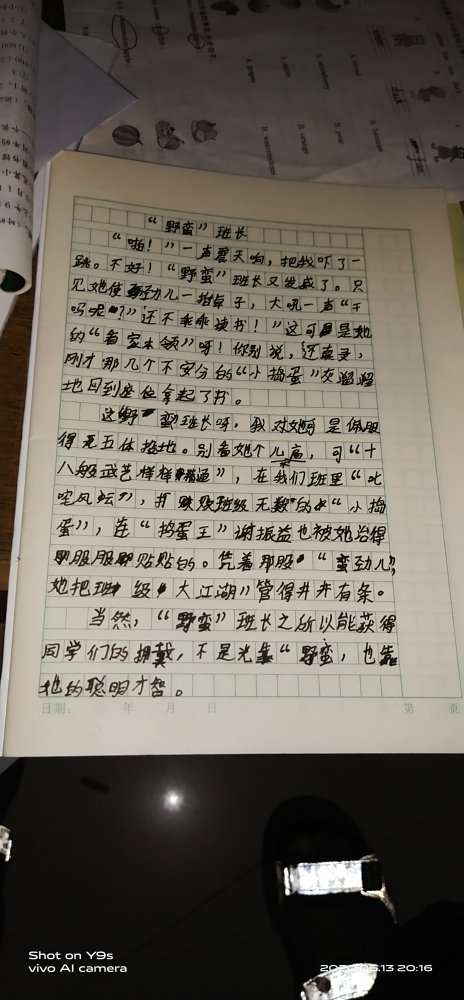 “野蛮”班长
“啪！”一声震天响，把我吓了一
跳。不好！“野蛮”班长又发威了。只
见她使劲儿一拍桌子，大吼一声“干
吗呢？”还不乖乖读书！”这可是她
的“看家本领”呀！你别说，还真灵，
刚才那几个不安分的“小捣蛋”灰溜溜
地回到座位拿起了书。
这野蛮班长呀，我对她可是佩服
得五体投地。别看她个儿高，可“十
八般武艺样样精通”，在我们班里“叱
咤风云”，打败班级无数的“小捣
蛋”，连“捣蛋王”谢振益也被她治得
服服贴贴的。凭着那股“蛮劲儿”，
她把班级“大江湖”管得井井有条。
当然，“野蛮”班长之所以能获得
同学们的拥戴，不是光靠“野蛮，也靠
她的聪明才智。
日期： 年 月 日 第 页
A. bread
A. strawberry
B. pear
A. apple
B. orange
A. grapes
B. watermelon
B. bananas
Shot on Y9s
vivo AI camera
2020.06.13 20:16